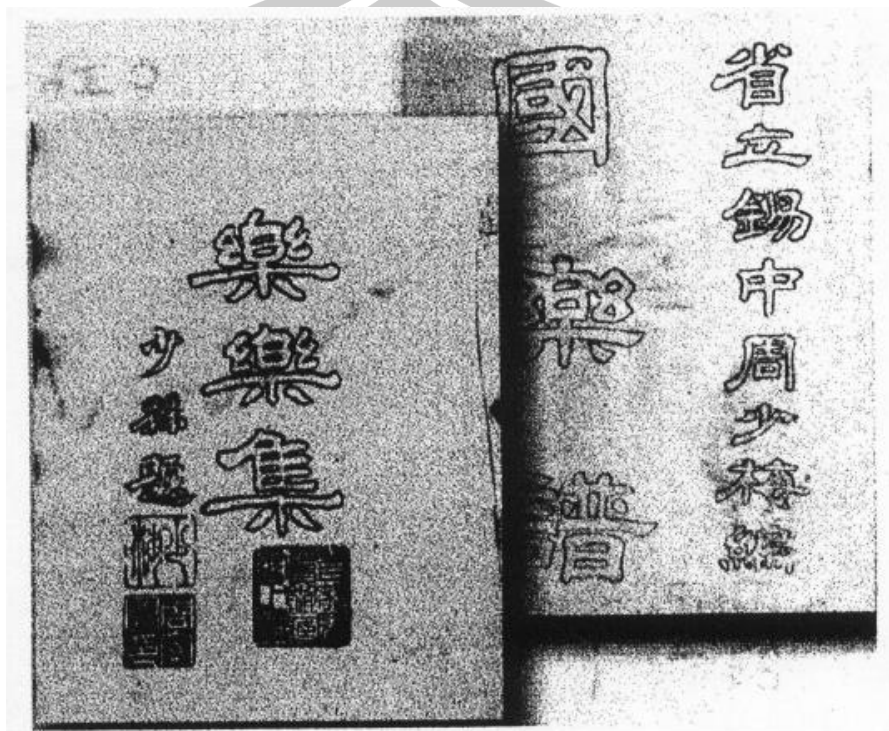 省立錫中周少梅編
國樂譜
樂樂集
少梅題